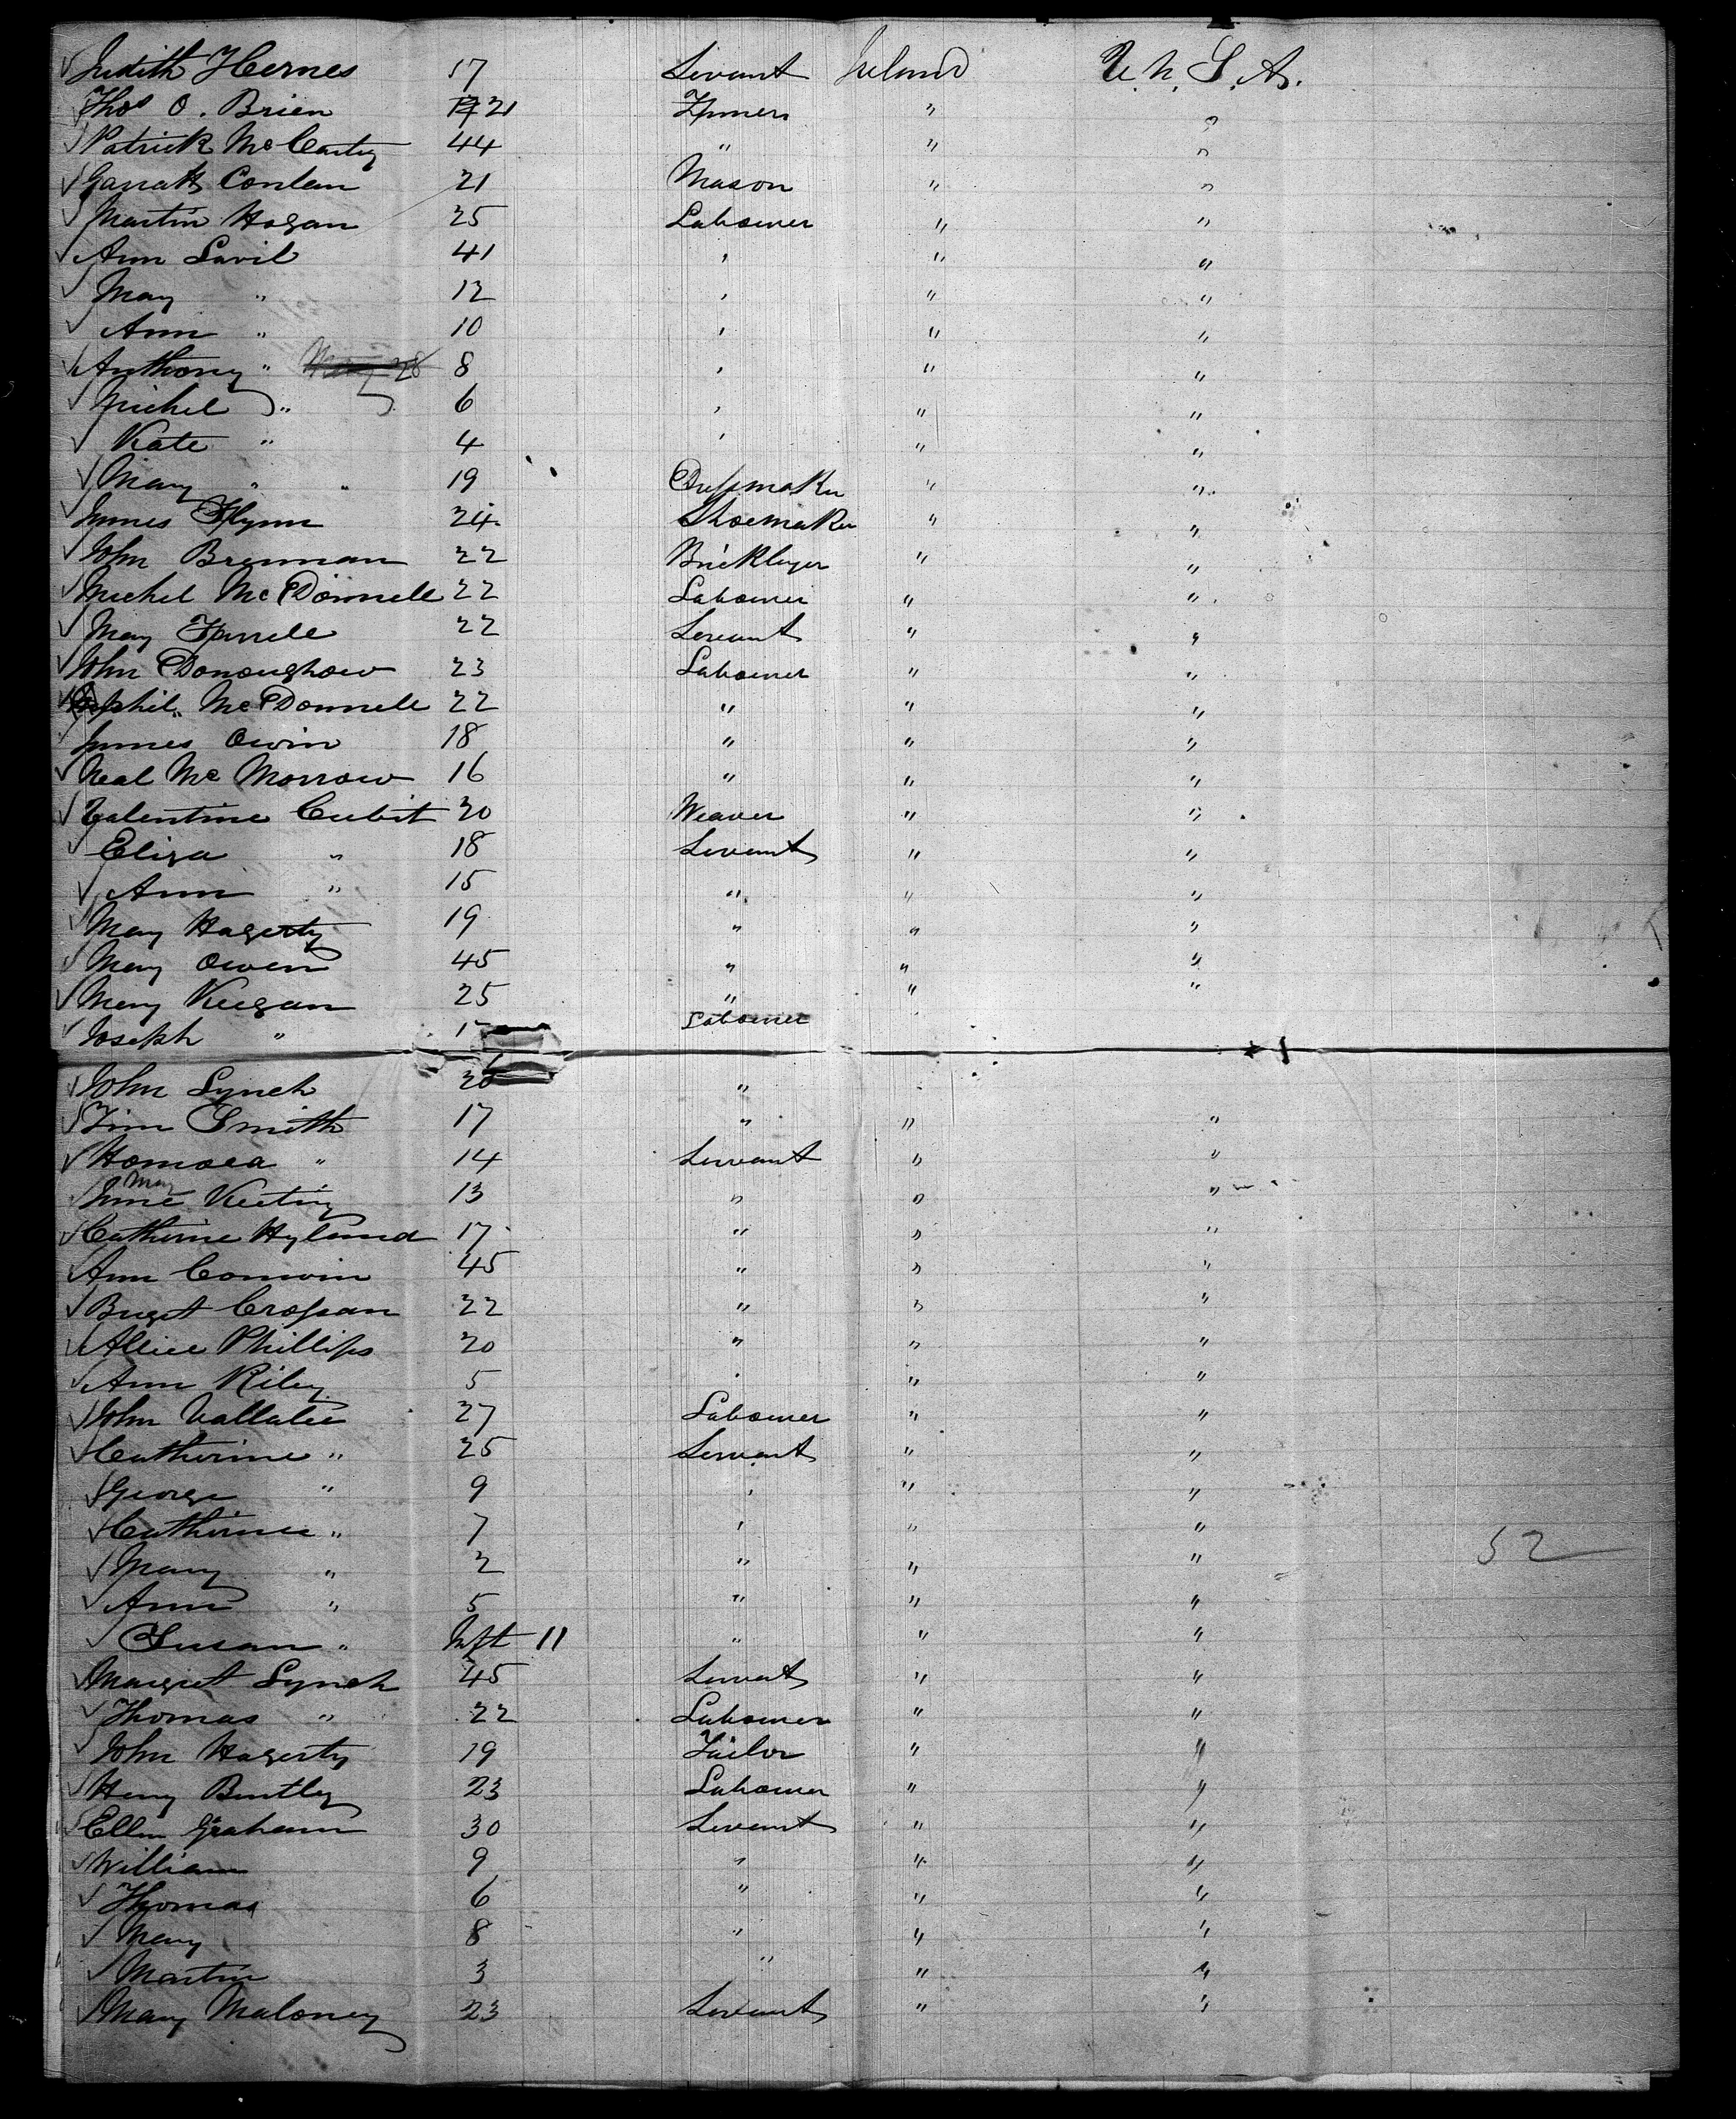 Judith Hernes 17 Servant Ireland U. S. A.
Thos O. Brien 21 Farmer " "
Patrick McCarty 44 " " "
Garratt Conlan 21 Mason " "
Martin Hogan 25 Labourer " "
Ann Savil 41 " " "
Mary " 12 " " "
Ann " 10 " " "
Anthony " 8 " " "
Michel " 6 " " "
Kate " 4 " " "
Mary " " 19 Dressmaker " "
James Flynn 24 Shoemaker " "
John Brennan 22 Bricklayer " "
Michel McDonnell 22 Labourer " "
Mary Farrell 22 Servant " "
John Donoughow 23 Labourer " "
McDonnell 22 " " "
James Owin 18 " " "
Neal Mc Morrow 16 " " "
Valentine Cubit 20 Weaver " "
Eliza " 18 Servant " "
Ann " 15 " " "
Mary Hagerty 19 " " "
Mary Owen 45 " " "
Mary Keegan 25 " " "
Joseph " Labourer
John Lynch 20 "
Tim Smith 17 " " "
" 14 Servant " "
May
Keeting 13 " " "
Catherine Hyland 17 " " "
Ann Conwin 45 " " "
Briget Crossan 22 " " "
Alice Phillips 20 " " "
Ann Riley 5 " " "
John Vallalie 27 Labourer " "
Catherine " 25 Servant " "
George " 9 " " "
Catherine " 7 " " "
Mary " 2 " " " 52
Ann " 5 " " "
Susan " Inft 11 " " "
Margret Lynch 45 Servant " "
Thomas " 22 Labourer " "
John Hagerty 19 Tailor " "
Henry Bentley 23 Labourer " "
Ellen Graham 30 Servant " "
William 9 " " "
Thomas 6 " " "
Mary 8 " " "
Martin 3 " " "
Mary Maloney 23 Servant " "